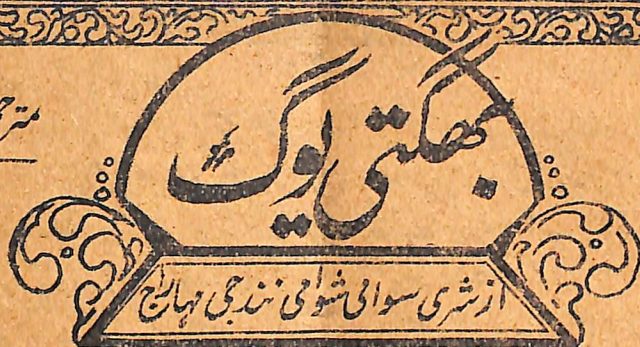 بھگتی یوگ
از شری سوامی شوامی نند جی مہاراج